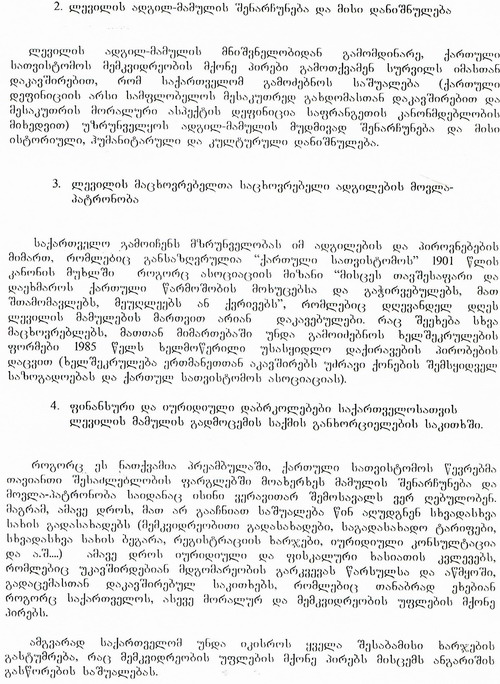 2. ლევილის ადგილ-მამულის შენარჩუნება და მისი დანიშნულება
ლევილის ადგილ-მამულის მნიშვნელობიდან გამომდინარე, ქართული
სათვისტომოს მემკვიდრეობის მქონე პირები გამოთქვამენ სურვილს იმასთან
დაკავშირებით, რომ საქართველომ გამოძებნოს საშუალება (ქართული
დეფინიციის არსი სამფლობელოს მესაკუთრედ გახდომასთან დაკავშირებით და
მესაკუთრის მორალური ასპექტის დეფინიცია საფრანგეთის კანონმდებლობის
მიხედვით) უზრუნველყოს ადგილ-მამულის მუდმივად შენარჩუნება და მისი
ისტორიული, ჰუმანიტარული და კულტურული დანიშნულება.
3. ლევილის მაცხოვრებელთა საცხოვრებელი ადგილების მოვლა-
პატრონობა
საქართველო გამოიჩენს მზრუნველობას იმ ადგილების და პიროვნებების
მიმართ, რომლებიც განსაზღვრულია “ქართული სათვისტომოს” 1901 წლის
კანონის მუხლში როგორც ასოციაციის მიზანი “მისცეს თავშესაფარი და
დაეხმაროს ქართული წარმოშობის მოხუცებსა და გაჭირვებულებს, მათ
შთამომავლებს, მეუღლეებს ან ქვრივებს”, რომლებიც დღევანდელ დღეს
ლევილის მამულების მართვით არიან დაკავებულები. რაც შეეხება სხვა
მაცხოვრებლებს, მათთან მიმართებაში უნდა გამოიძებნოს ხელშეკრულების
ფორმები 1985 წელს ხელმოწერილი უსასყიდლო დაქირავების პირობების
დაცვით (ხელშეკრულება ერთმანეთთან აკავშირებს უძრავი ქონების შემსყიდველ
საზოგადოებას და ქართულ სათვისტომოს ასოციაციას).
4. ფინანსური და იურიდიული დაბრკოლებები საქართველოსათვის
ლევილის მამულის გადმოცემის საქმის განხორციელების საკითხში.
როგორც ეს ნათქვამია პრეამბულაში, ქართული სათვისტომოს წევრებმა
თავიანთი შესაძლებლობის ფარგლებში მოახერხეს მამულის შენარჩუნება და
მოვლა-პატრონობა საიდანაც ისინი ვერავითარ შემოსავალს ვერ ღებულობენ.
მაგრამ, ამავე დროს, მათ არ გააჩნიათ საშუალება წინ აღუდგნენ სხვადასხვა
სახის გადასახადებს (მემკვიდრეობითი გადასახადები, საგადასახადო ტარიფები,
სხვადასხვა სახის ბეგარა, რეგისტრაციის ხარჯები, იურიდიული კონსულტაცია
და ა.შ...) ამავე დროს იურიდიული და ფისკალური ხასიათის კვლევებს,
რომლებიც უკავშირდებიან მდგომარეობის გარკვევას წარსულსა და აწმყოში,
გადაცემასთან დაკავშირებულ საკითხებს, რომლებიც თანაბრად ეხებიან
როგორც საქართველოს, ასევე მორალურ და მემკვიდრეობის უფლების მქონე
პირებს.
ამგვარად საქართველომ უნდა იკისროს ყველა შესაბამისი ხარჯების
გასტუმრება, რაც მემკვიდრეობის უფლების მქონე პირებს მისცემს ანგარიშის
გასწორების საშუალებას.